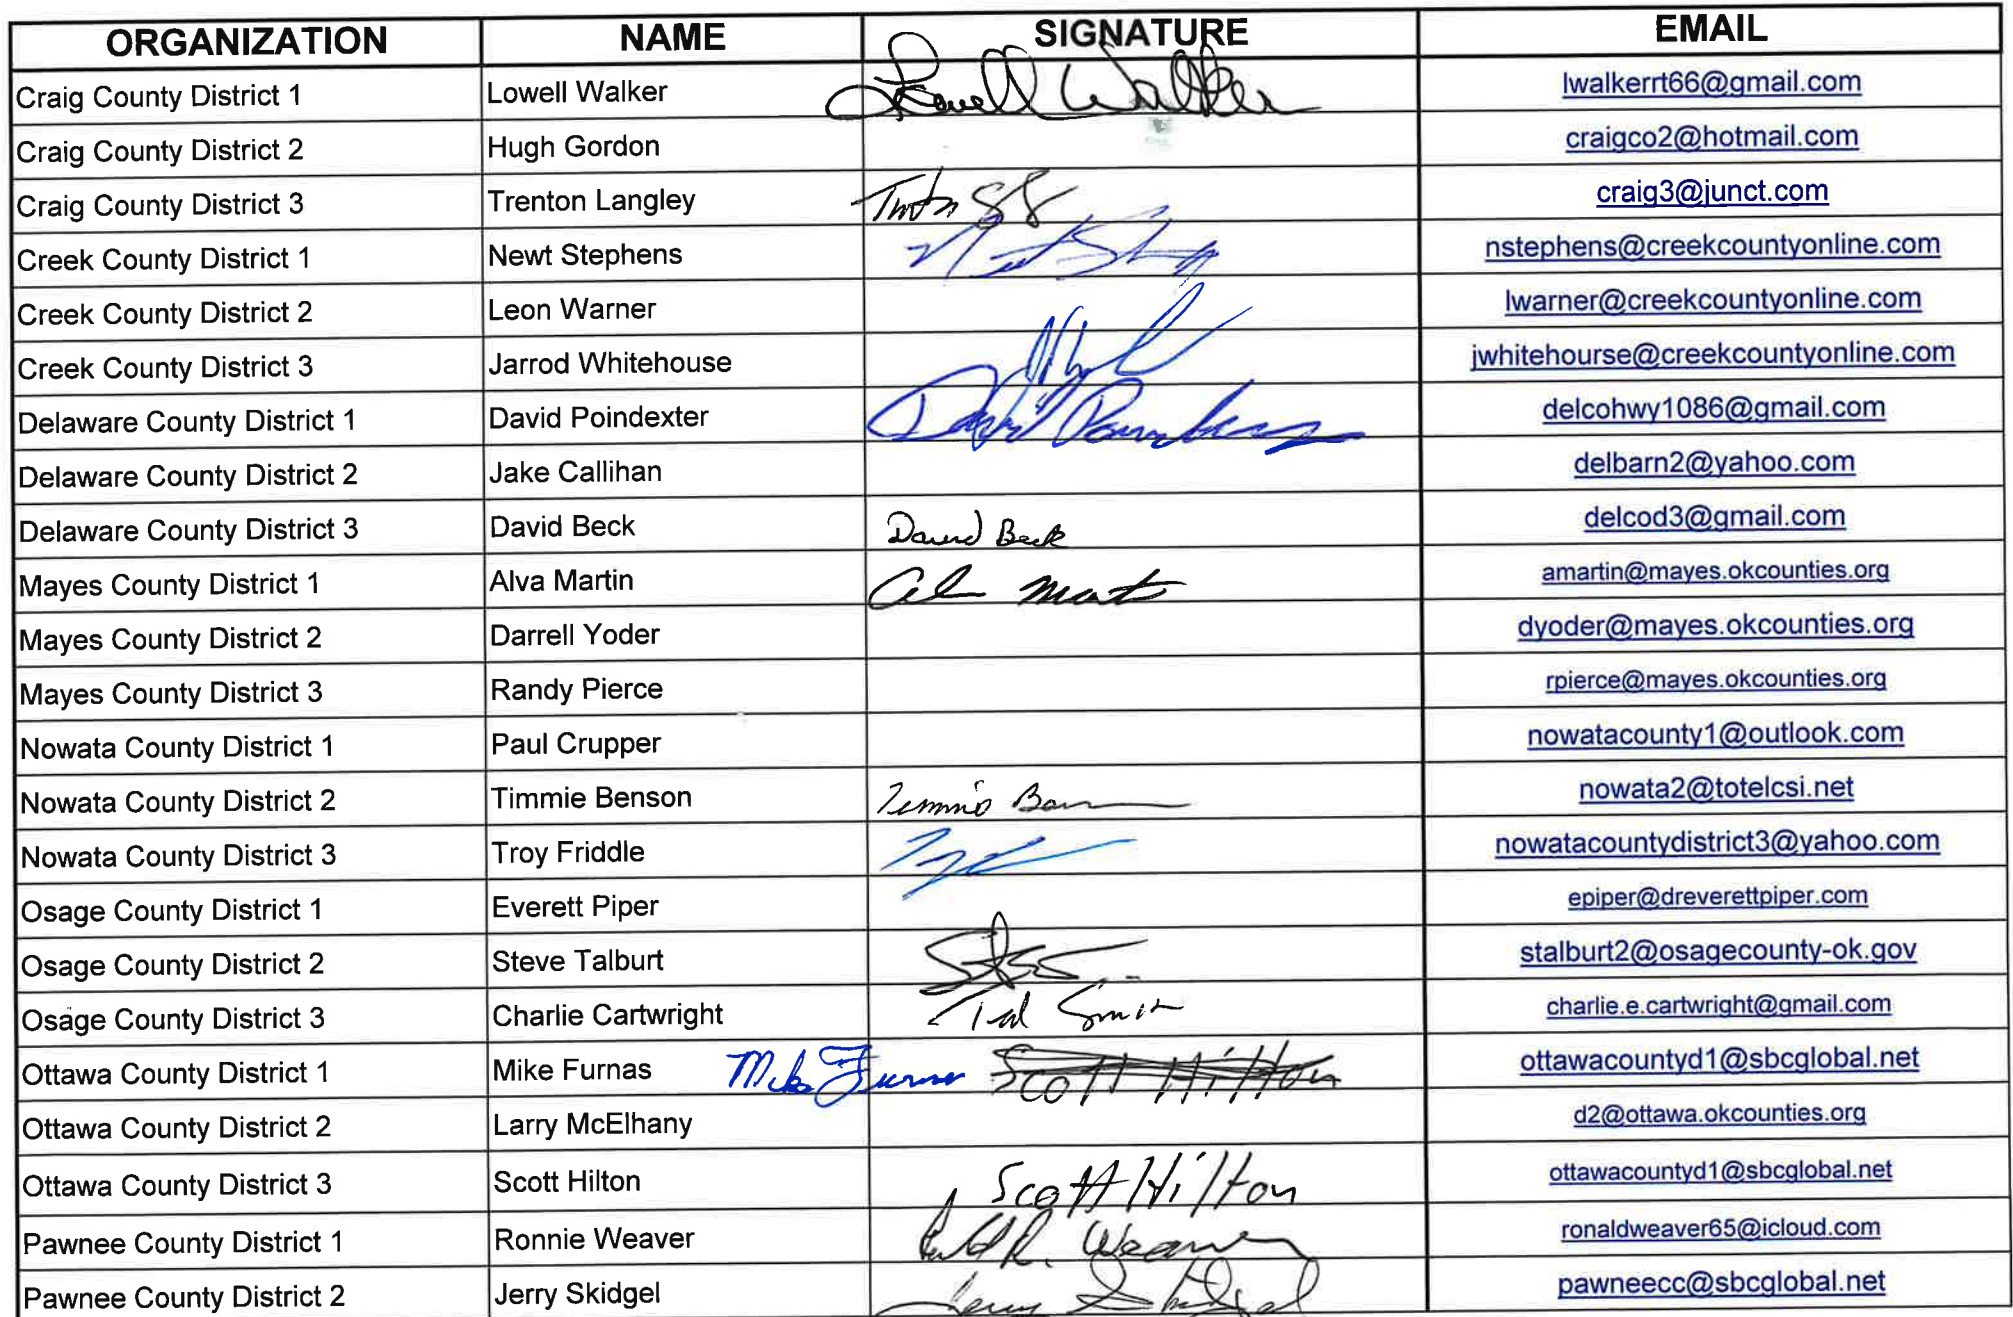 ORGANIZATION NAME SIGNATURE EMAIL
Craig County District 1 Lowell Walker Lowell Walker lwalkerrt66@gmail.com
Craig County District 2 Hugh Gordon craigco2@hotmail.com
Craig County District 3 Trenton Langley craig3@junct.com
Creek County District 1 Newt Stephens nstephens@creekcountyonline.com
Creek County District 2 Leon Warner lwarner@creekcountyonline.com
Creek County District 3 Jarrod Whitehouse jwhitehourse@creekcountyonline.com
Delaware County District 1 David Poindexter David delcohwy1086@gmail.com
Delaware County District 2 Jake Callihan delbarn2@yahoo.com
Delaware County District 3 David Beck David Beck delcod3@gmail.com
Mayes County District 1 Alva Martin amartin@mayes.okcounties.org
Mayes County District 2 Darrell Yoder dyoder@mayes.okcounties.org
Mayes County District 3 Randy Pierce rpierce@mayes.okcounties.org
Nowata County District 1 Paul Crupper nowatacounty1@outlook.com
Nowata County District 2 Timmie Benson nowata2@totelcsi.net
Nowata County District 3 Troy Friddle nowatacountydistrict3@yahoo.com
Osage County District 1 Everett Piper epiper@dreverettpiper.com
Osage County District 2 Steve Talburt stalburt2@osagecounty-ok.gov
Osage County District 3 Charlie Cartwright charlie.e.cartwright@gmail.com
Ottawa County District 1 Mike Furnas Mike Furnas Scott Hilton ottawacountyd1@sbcglobal.net
Ottawa County District 2 Larry McElhany d2@ottawa.okcounties.org
Ottawa County District 3 Scott Hilton Scott Hilton ottawacountyd1@sbcglobal.net
Pawnee County District 1 Ronnie Weaver R. Weaver ronaldweaver65@icloud.com
Pawnee County District 2 Jerry Skidgel Jerry Skidgel pawneecc@sbcglobal.net